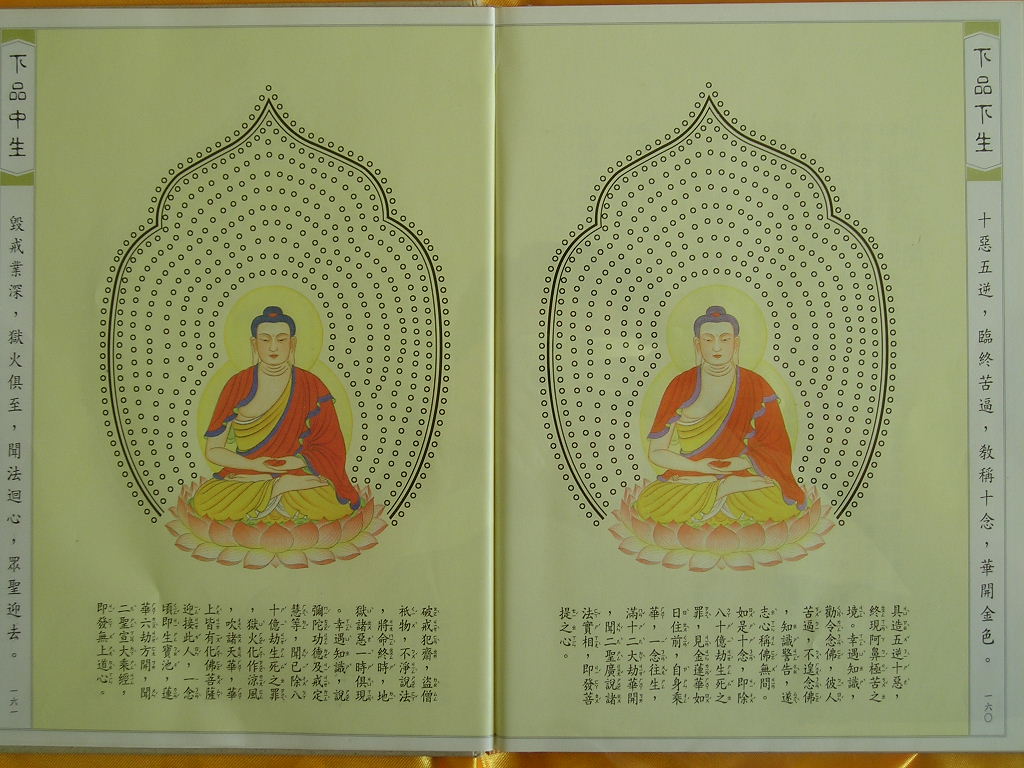 下品下生
十惡五逆，臨終苦逼，教稱十念，華開金色。
一六〇
具造五逆十惡，
終現阿鼻極苦之
境。幸遇知識，
勸令念佛，彼人
苦逼，不遑念佛
，知識警告，遂
志心稱佛無間。
如是十念，即除
八十億劫生死之
罪，見金蓮華如
日住前，自身乘
華，一念往生，
滿十二大劫華開
，聞二聖廣說諸
法實相，即發菩
提之心。
下品中生
毀戒業深，獄火俱至，聞法迴心，眾聖迎去。
一六一
破戒犯齋，盜僧
祇物，不淨說法
，將命終時，地
獄諸惡一時俱現
。幸遇知識，說
彌陀功德及戒定
慧等，聞已除八
十億劫生死之罪
，獄火化作涼風
，吹諸天華，華
上皆有化佛菩薩
迎接此人，一念
頃即生寶池，蓮
華六劫方開，聞
二聖宣大乘經，
即發無上道心。